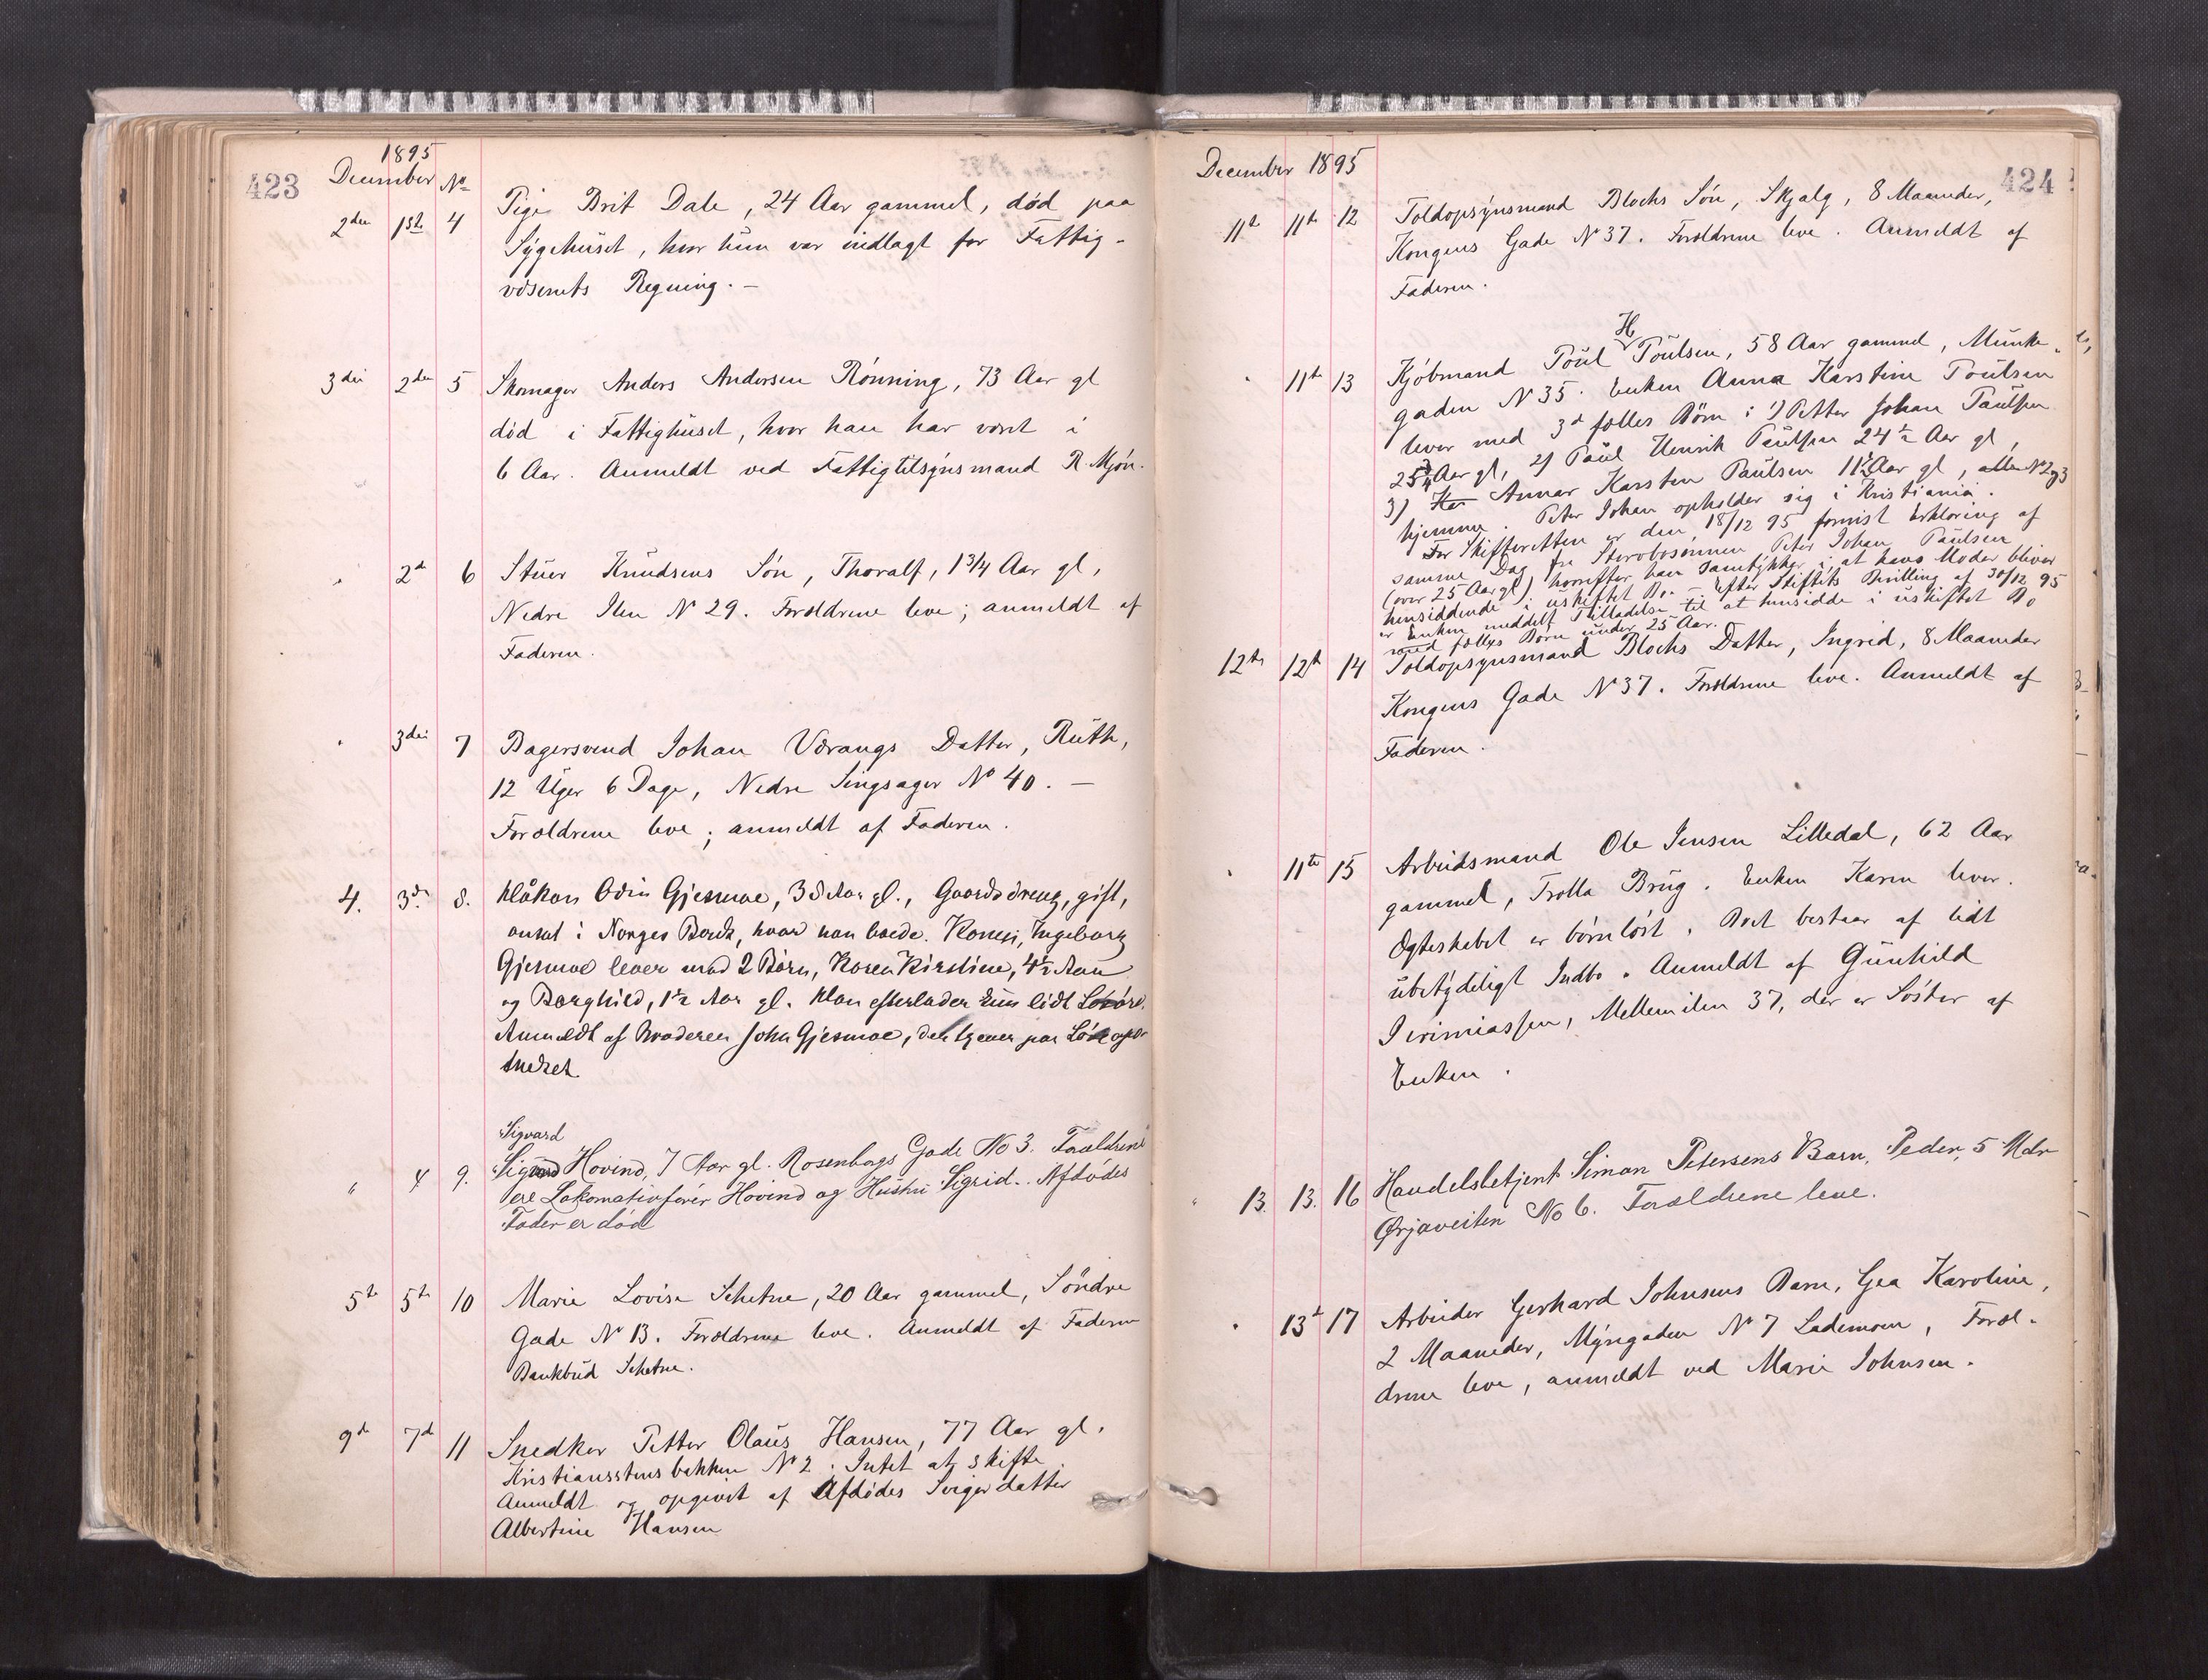 423
1895
December No
2den 1ste 4 Pige Brit Dale, 24 Aar gammel, død paa
Sygehuset, hvor hun var indlagt for Fattig-
væsenets Regning. —
3die 2den 5 Skomager Anders Andersen Rønning, 73 Aar gl
død i Fattighuset, hvor han har været i
6 Aar. Anmeldt ved Fattigtilsynsmand R. Mjøn.
" 2d 6 Stuer Knudsens Søn, Thoralf, 1 3/4 Aar gl,
Nedre Ilen No 29. Forældrene leve; anmeldt af
Faderen.
" 3die 7 Bagersvend Johan Værangs Datter, Ruth,
12 Uger 6 Dage, Nedre Singsager No 40. —
Forældrene leve; anmeldt af Faderen.
4. 3de 8. Håkon Odin Gjesmoe, 38 Aar gl., Gaardsdreng, gift,
ansat i Norges Bank, hvor han boede. Konen, Ingeborg
Gjesmoe lever med 2 Børn, Karen Kirstine, 4 1/2 Aar
og Borghild, 1 1/2 Aar gl. Han efterlader kun lidt Løsøre.
Anmeldt af Broderen John Gjesmoe, der
" 4 9. Sigvard
Hovind, 7 Aar gl. Rosenborgs Gade No 3. Forældrene
ere Lokomotivfører Hovind og Hustru Sigrid. Afdødes
Fader er død
5te 5te 10 Marie Lovise Schetne, 20 Aar gammel, Søndre
Gade No 13. Forældrene leve. Anmeldt af Faderen
Bankbud Schetne.
9de 7d 11 Snedker Petter Olaus Hansen, 77 Aar gl.
Kristianstensbakken No 2. Intet at skifte
Anmeldt og opgivet af Afdødes Svigerdatter
Albertine Hansen
424
December 1895
11te 11te 12 Toldopsynsmand Blochs Søn, Skjalg, 8 Maaneder,
Kongens Gade No 37. Forældrene leve. Anmeldt af
Faderen.
" 11te 13 Kjøbmand Poul H Poulsen, 58 Aar gammel, Munke-
gaden No 35. Enken Anna Karstine Poulsen
lever med 3d fælles Børn: 1) Petter Johan Paulsen
25 3/4 Aar gl, 2) Paul Henrik Paulsen 24 1/2 Aar gl,
3) Annar Karsten Paulsen 11 1/2 Aar gl, No 2 og 3
hjemme. Peter Johan opholder sig i Kristiania.
For Skifteretten er den 18/12 95 forevist Erklæring af
samme Dag fra Stervbosønnen Peter Johan Paulsen
(over 25 Aar gl) hvorefter han samtykker i, at hans Moder bliver
hensiddende i uskiftet Bo. — Efter Stiftets Bevilling af 30/12 95
er Enken meddelt Tilladelse til at hensidde i uskiftet Bo
med fælles Børn under 25 Aar.
12te 12te 14 Toldopsynsmand Blochs Datter, Ingrid, 8 Maaneder
Kongens Gade No 37. Forældrene leve. Anmeldt af
Faderen.
" 11te 15 Arbeidsmand Ole Jensen Lilledal, 62 Aar
gammel, Trolla Brug. Enken Karen lever.
Ægteskabet er børnløst. Boet bestaar af lidt
ubetydeligt Indbo. Anmeldt af Gunhild
Jerimiassen, Mellemilen 37, der er Søster af
Enken.
" 13. 13. 16 Handelsbetjent Simon Petersens Barn, Peder, 5 Mdr
Ørjaveiten No 6. Forældrene leve.
" 13d 17 Arbeider Gerhard Johnsens Barn, Gea Karoline,
2 Maaneder, Myrgaden No 7 Lademoen, Foræl-
drene leve, anmeldt ved Marie Johnsen.